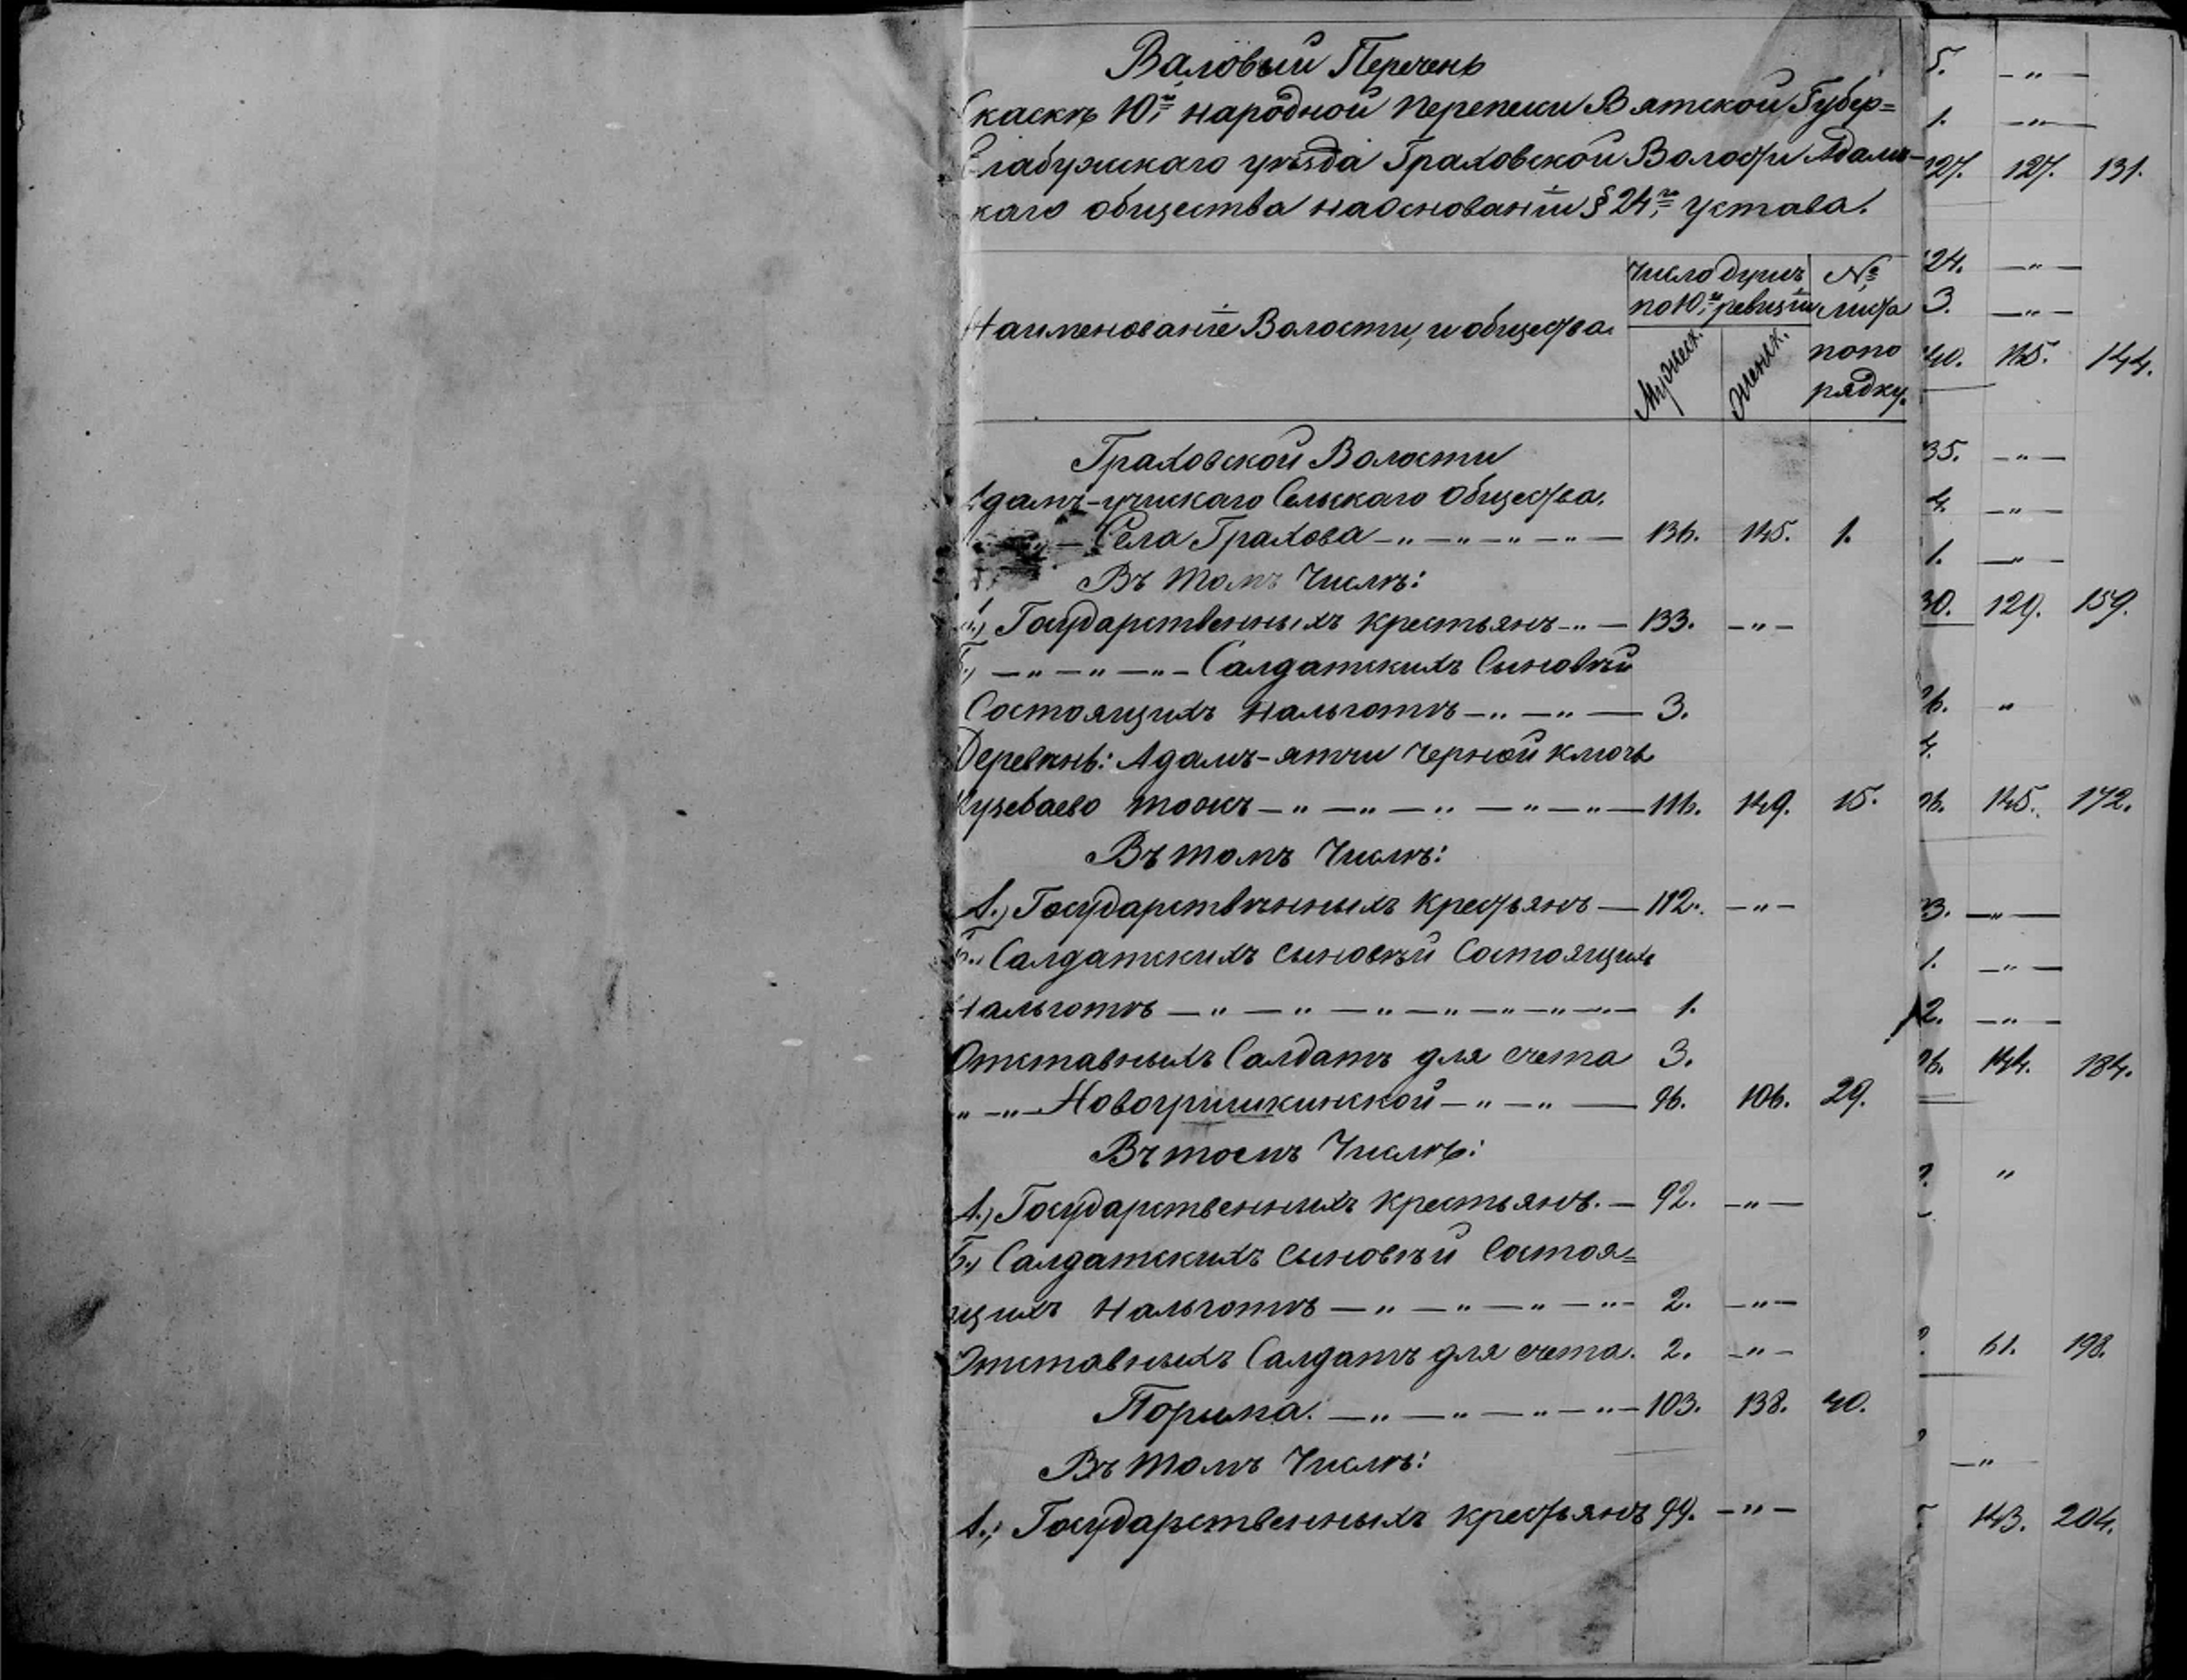 Валовый Перечень
Сказкѣ 10й народной переписи Вятской Губер=
Елабужскаго уѣзда Граховской Волости Адам-
каго общества наоснованіи § 24го устава.
Наименованіе Волости, и общества.
Число душъ
по 10й ревизіи
Мужеск.
Женск.
№
листа
попо
рядку.
Граховской Волости
Адамъ-учинскаго Сельскаго Общества.
Села Грахова — „ — „ — „ — „ — 136. 145. 1.
Въ томъ Числѣ:
А.) Государственныхъ крестьянъ — „ — 133. — „ —
Б.) — „ — „ — „ — Салдатскихъ Сыновѣй
Состоящихъ нальготѣ — „ — „ — 3.
Деревнь: Адамъ-ятчи Черной ключь
Кузебаево тожъ — „ — „ — „ — „ — „ — 116. 149. 15.
Въ томъ Числѣ:
А.) Государствѣнныхъ Крестьянъ — 112. — „ —
Б.) Салдатскихъ сыновѣй Состоящихъ
Нальготѣ — „ — „ — „ — „ — „ — „ — 1.
Отставныхъ Салдатъ для счета 3.
„ — „ — Новогришкинской — „ — „ — 96. 106. 29.
Въ томъ Числѣ:
А.) Государственныхъ Крестьянъ. — 92. — „ —
Б.) Салдатскихъ сыновѣй Состоя=
щихъ Нальготѣ — „ — „ — „ — „ — 2. — „ —
Отставныхъ Салдатъ для счета. 2. — „ —
Порыма. — „ — „ — „ — „ — 103. 138. 40.
Въ томъ Числѣ:
А.) Государственныхъ крестьянъ 99. — „ —
5. — „ —
1. — „ —
127. 127. 131.
24. — „ —
3. — „ —
40. 165. 144.
35. — „ —
4. — „ —
1. — „ —
30. 129. 159.
6. „
4.
6. 145. 172.
3. — „ —
1. — „ —
2. — „ —
6. 144. 184.
„
61. 198.
— „
143. 204.